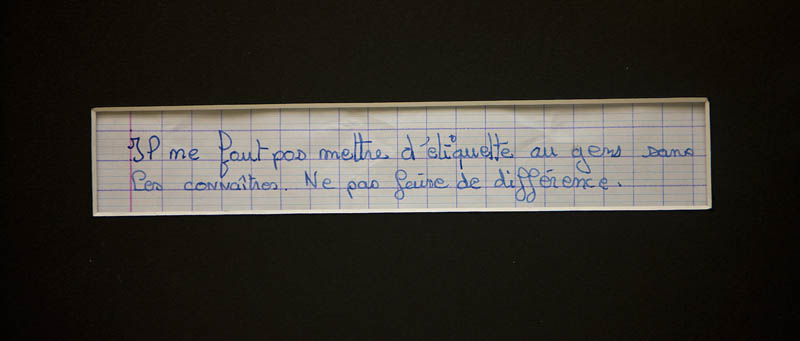 Il ne faut pas mettre d'étiquette au gens sans
les connaîtres. Ne pas faire de différence.